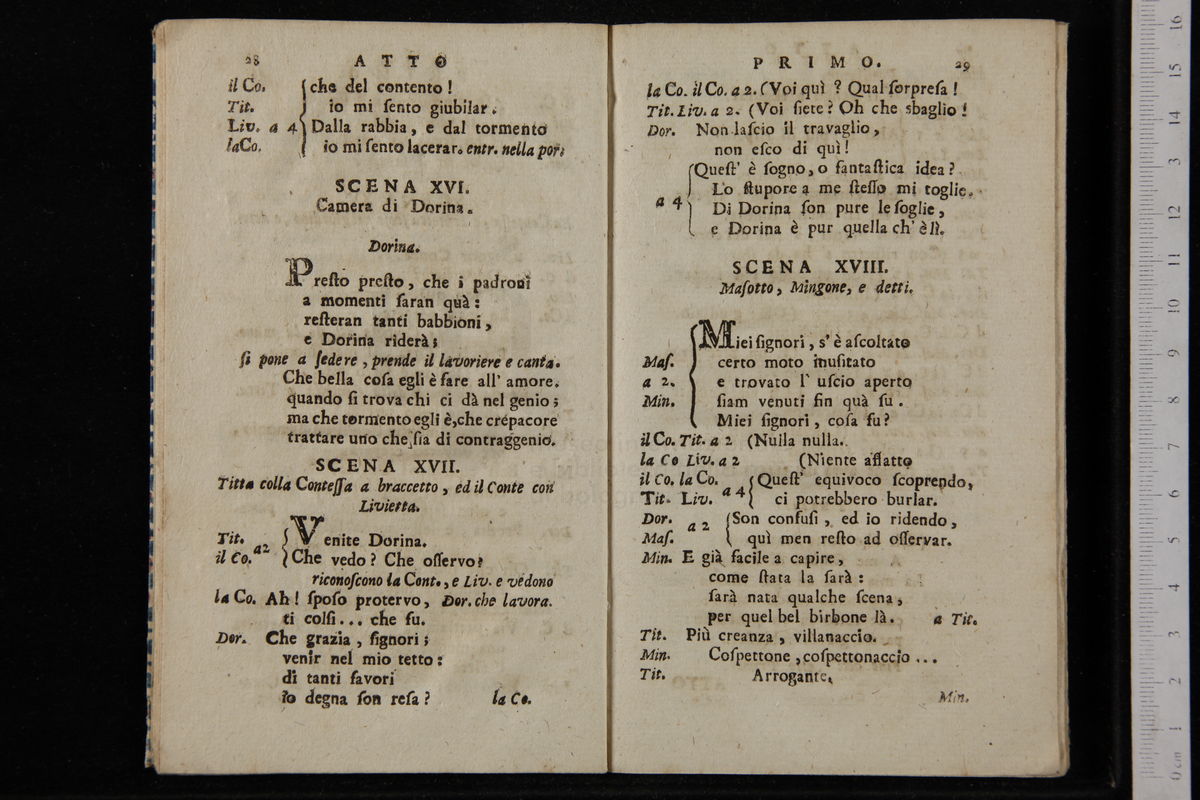 28 ATTO
il Co. che del contento !
Tit. io mi ſento giubilar.
Liv. a 4 Dalla rabbia, e dal tormento
la Co. io mi ſento lacerar. entr. nella por.
SCENA XVI.
Camera di Dorina.
Dorina.
Preſto preſto, che i padroni
a momenti ſaran quà :
reſteran tanti babbioni,
e Dorina riderà ;
ſi pone a ſedere, prende il lavoriere e canta.
Che bella coſa egli è fare all' amore.
quando ſi trova chi ci dà nel genio ;
ma che tormento egli è, che crepacore
trattare uno che ſia di contraggenio.
SCENA XVII.
Titta colla Conteſſa a braccetto, ed il Conte con
Livietta.
Tit. Venite Dorina.
il Co. a2 Che vedo ? Che oſſervo ?
riconoſcono la Cont., e Liv. e vedono
la Co. Ah ! ſpoſo protervo, Dor. che lavora.
ti colſi... che fu.
Dor. Che grazia, ſignori ;
venir nel mio tetto :
di tanti favori
io degna ſon reſa ? la Co.
PRIMO. 29
la Co. il Co. a 2. (Voi quì ? Qual ſorpreſa !
Tit. Liv. a 2. (Voi ſiete ? Oh che sbaglio !
Dor. Non laſcio il travaglio,
non eſco di quì !
Queſt' è ſogno, o fantaſtica idea ?
Lo ſtupore a me ſteſſo mi toglie.
a 4 Di Dorina ſon pure le ſoglie,
e Dorina è pur quella ch' è lì.
SCENA XVIII.
Maſotto, Mingone, e detti.
Miei ſignori, s' è aſcoltato
Maſ. certo moto inuſitato
a 2. e trovato l' uſcio aperto
Min. ſiam venuti fin quà ſu.
Miei ſignori, coſa fu ?
il Co. Tit. a 2 (Nulla nulla.
la Co Liv. a 2 (Niente affatto
il Co. la Co. Queſt' equivoco ſcoprendo,
Tit. Liv. a 4 ci potrebbero burlar.
Dor. a 2 Son confuſi, ed io ridendo,
Maſ. quì men reſto ad oſſervar.
Min. E già facile a capire,
come ſtata la ſarà :
ſarà nata qualche ſcena,
per quel bel birbone là. a Tit.
Tit. Più creanza, villanaccio.
Min. Coſpettone, coſpettonaccio ...
Tit. Arrogante.
Min.
0 cm 1 2 3 4 5 6 7 8 9 10 11 12 13 14 15 16